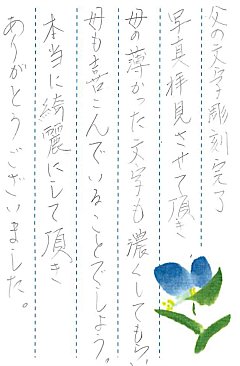 父の文字彫刻完了
早真拝見させて頂き
母の薄かった文字も濃くしてもらい
母も喜こんでいることでしょう。
本当に綺麗にして頂き
ありがとうございました。